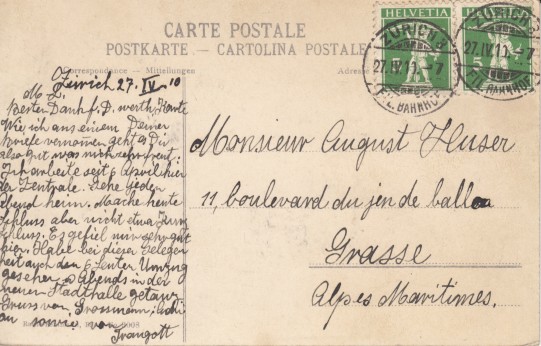 CARTE POSTALE
POSTKARTE - CARTOLINA POSTALE
Correspondence - Mittellungen
Adresse
HELVETIA
ZÜRICH
27.IV.10. 7
FIL. BAHNHOF
ZÜRICH
27.IV.10. 7
FIL. BAHNHOF
5
Zürich 27. IV 10
M. L.
Bester Dank f. D. werth. Karte
Wie ich aus einem Deiner
Briefe vernommen geht es Du
also gut was mich sehr freut.
Ich arbeite seit 6 April hier
der Zentrale. Gehe jeden
Abend heim. Mache heute
Schluss aber nicht etwa
schluss. Es gefiel mir sehr gut
hier. Habe bei dieser Gelegen
heit auch den Umzug
gesehen. Abends in der
neuen Stadthalle getanzt
Gruss von Grossmann,
sowie von
Traugott
Monsieur August Huser
11, boulevard du jeu de ballon
Grasse
Alpes Maritimes.